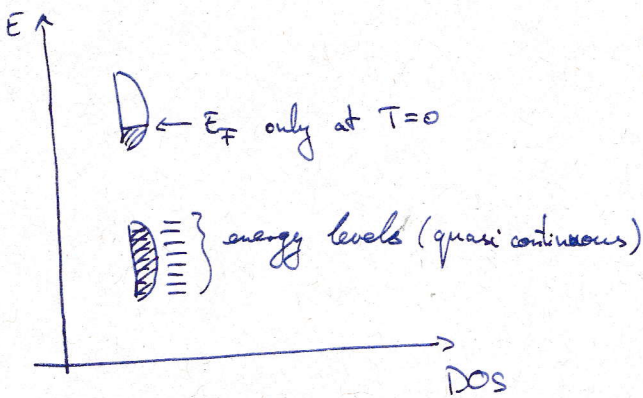 E
← E_F only at T=0
} energy levels (quasi continuous)
DOS